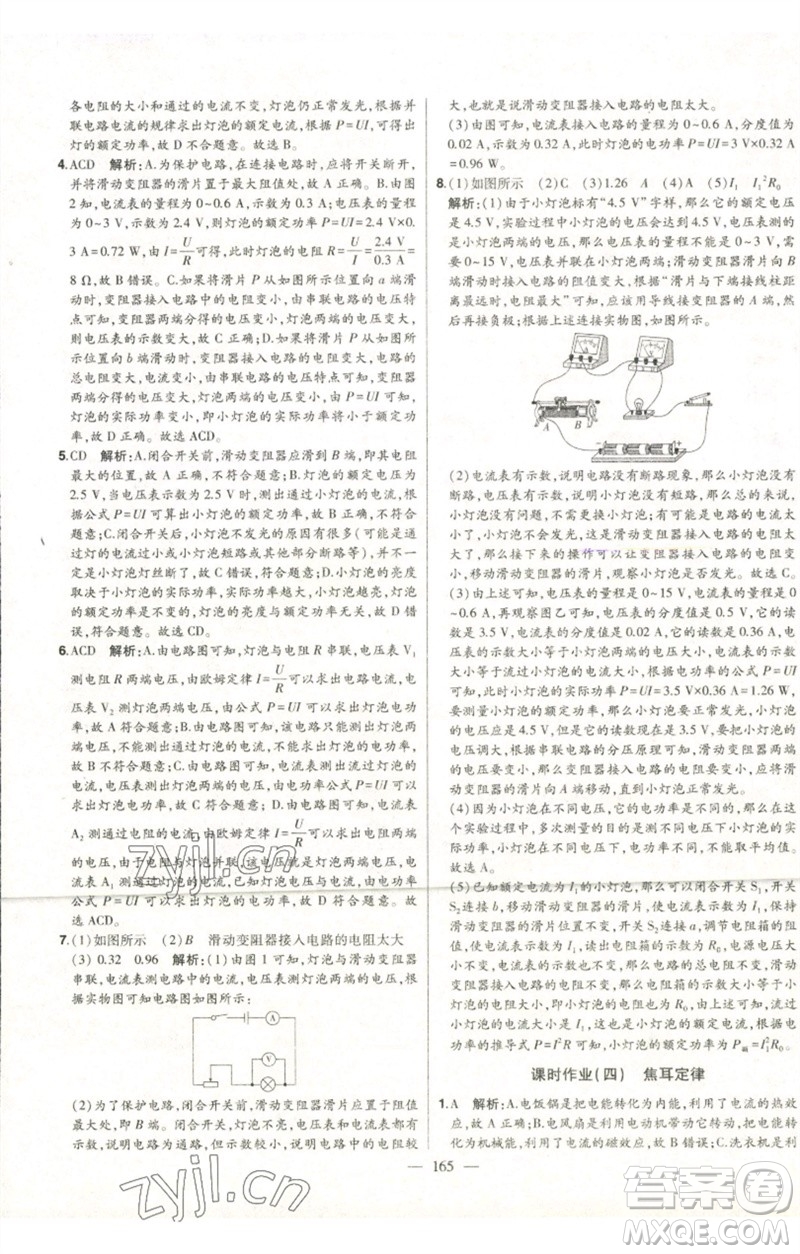 各电阻的大小和通过的电流不变,灯泡仍正常发光,根据并
联电路电流的规律求出灯泡的额定电流,利用 P=UI,可得出
灯泡的额定功率。故 D 不合题意。故选 B。
4. ACD 解析:A.为保护电路,在连接电路时,应将开关断开,
并将滑动变阻器的滑片置于最大值处,故 A 正确。B.由图
2 知,电流表的量程为 0~0.6 A,示数为 0.3 A;电压表的量程
为 0~3 V,示数为 2.4 V,则灯泡的额定功率 P=UI=2.4 V×0.
3 A=0.72 W,由 I=U/R 可知,此时灯泡的电阻 R=U/I=2.4 V/0.3 A=
8 Ω,故 B 错误。C.如果将滑片 P 从如图所示位置向 a 端滑
动时,变阻器接入电路中的电阻变小,由串联电路的电压特
点可知,变阻器两端分得的电压变小,小灯泡两端的电压变大,
则电压表的示数变大,故 C 正确;D.如果将滑片 P 从如图
所示位置向 b 端滑动时,变阻器接入电路的电阻变大,电路的
总电阻变大,由串联电路的电压特点可知,滑动变阻器两端
分得的电压变大,小灯泡两端的电压变小,由 P=UI 可
知,灯泡的实际功率变小,即小灯泡的实际功率将小于额定功
率,故 D 正确。故选 ACD。
5. CD 解析:A.闭合开关前,滑动变阻器应滑到 B 端,即其电阻
最大的位置,故 A 正确,不符合题意;B.灯泡的额定电压为
2.5 V,当电压表示数为 2.5 V 时,测出通过小灯泡的电流,根
据公式 P=UI 可得小灯泡的额定功率,故 B 正确,不符合题
意;C.闭合开关,小灯泡不发光的原因有很多(可能是通
过灯的电流过小或小灯泡短路或其他部分断路等),不一定
是小灯泡的灯丝断了,故 C 错误,符合题意;D.小灯泡的亮度
取决于小灯泡的实际功率,实际功率越大,小灯泡越亮,灯泡的
额定功率是不变的,小灯泡的亮度与额定功率无关,故 D 错
误,符合题意。故选 CD。
6. ACD 解析:A.由电路图可知,灯泡与电阻 R 串联,电压表 V₁
测电阻 R 两端电压,由欧姆定律 I=U/R 可以求出电路电流,电
压表 V₂ 测灯泡两端电压,由 P=UI 可以求出灯泡电功
率,故 A 符合题意;B.由电路图可知,该电路只能测出灯泡两端电
压,不能测出通过灯泡的电流,不能求出灯泡的电功率,
故 B 不符合题意;C.由电路图可知,电压表测灯泡两端电压,
电流表测通过灯泡的电流,已知灯泡两端电压、电流,由 P=UI 可以
求出灯泡电功率,故 C 符合题意;D.由电路图可知,电流表
A₂ 测通过电阻的电流,由欧姆定律 I=U/R 可以求出电阻两端的
电压,电阻与灯泡并联,该电压就是灯泡两端电压,电流表
电流表 A₁ 测通过灯泡的电流,由 P=UI 可以求出灯泡电功率,故 D 符合题
意。故选
ACD。
7. (1)如图所示 (2)B 滑动变阻器接入电路的电阻太大
(3) 0.32 0.96 解析:(1)由图 1 可知,灯泡与滑动变阻器
串联,电流表测电路中的电流,电压表测灯泡两端的电压,根
据实物图可知电路图如图所示。
(2)为了保护电路,闭合开关前,滑动变阻器接入电路中的电阻
最大处,即 B 端。闭合开关,灯泡不亮,电流表、电压表均有示
数,说明电路为通路,但示数较小,说明电路中的电阻较
大,也就是说滑动变阻器接入电路的电阻太大。
(3)由图可知,电流表的量程为 0~0.6 A,分度值为
0.02 A,示数为 0.32 A,此时灯泡的功率 P=UI=3 V×0.32 A
=0.96 W。
8. (1)如图所示 (2)C (3)1.26 A (4)A (5)I₁ I₁²R₀
解析:(1)由于小灯泡标有“4.5 V”字样,那么它的额定电压
是 4.5 V,实验过程中小灯泡的电压会达到 4.5 V,电压表测的
是小灯泡两端的电压,那么电压表的量程不能是 0~3 V,需
要 0~15 V,电压表并联在小灯泡两端;滑动变阻器滑片向 B
端滑动时接入电路的阻值变大,根据“滑片与下端接线柱距
离越远电阻越大”可知,应该用导线接变阻器的 A 端,然
后再接负极;根据上述连接实物图,如图所示。
A B
(2)电流表有示数,说明电路没有断路现象,那么小灯泡没有
断路,电压表有示数,那么小灯泡没有短路,那么总的来说,
小灯泡没有坏,不需要更换小灯泡;有可能是电路的电流太
小了,小灯泡不会发光,这是滑动变阻器接入电路的电阻太大
了,那么接下来的操作可以让变阻器接入电路的电阻变
小,移动滑动变阻器的滑片,观察小灯泡是否发光。故选 C。
(3)由上述可知,电压表的量程是 0~15 V,电流表的量程是 0
~0.6 A,再观察图乙可知,电压表的分度值是 0.5 V,它的读数
是 3.5 V,电流表的分度值是 0.02 A,它的读数是 0.36 A,电压
表示数大小等于小灯泡的电压大小,电流表示数
大小等于流过小灯泡的电流大小,根据电功率的公式 P=UI
可知,小灯泡的功率大小 P=UI=3.5 V×0.36 A=1.26 W。
要测量小灯泡的额定功率,小灯泡的电压要达到 4.5 V,
那么需要把滑动变阻器的读数从 3.5 V 调到 4.5 V,把小灯泡的
电压调大,根据串联电路的分压原理可知,滑动变阻器的电
压需要变小,那么滑动变阻器接入电路的电阻要变小,滑动变
阻器的滑片向 A 端移动,直到小灯泡正常发光。
(4)因为小灯泡在不同电压下,它的电功率是不同的,那么在
本实验过程中,多次测量的目的是测量不同电压下的电功率。
故选 A。
(5)已知额定电流为 I₁ 的小灯泡,那么可以闭合开关 S₁,开关
S₂接 b,移动滑动变阻器的滑片,使电流表示数为 I₁,此时小灯
泡正常发光;然后开关 S₂ 接 a,调节电阻箱的阻
值,使电流表示数为 I₁,读出电阻箱的示数 R₀,电源电压大小
不变,滑动变阻器的电阻不变,那么电阻箱的电阻大小等于小
灯泡的电阻大小,即小灯泡正常发光时的电阻也为 R₀,小灯泡
的电流大小是 I₁,那么小灯泡的额定功率大小,根据电
功率的推导式 P=I²R 可知,小灯泡的额定功率大小 P额=I₁²R₀。
课时作业(四) 焦耳定律
1. A 解析:A.电饭锅是把电能转化为内能,利用了电流的热效
应,故 A 符合题意;B.电风扇是利用电动机带动它转动,把电能转
化为机械能,利用了电流的磁效应,故 B 错误;C.洗衣机是利
165
zyjl.cn
zyjl.cn
答案圈
MXQE.COM